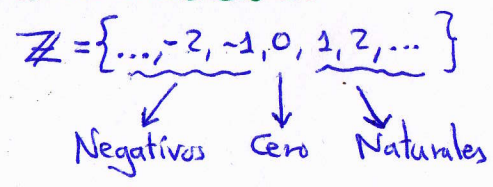 ℤ = {..., -2, -1, 0, 1, 2, ...}
Negativos Cero Naturales